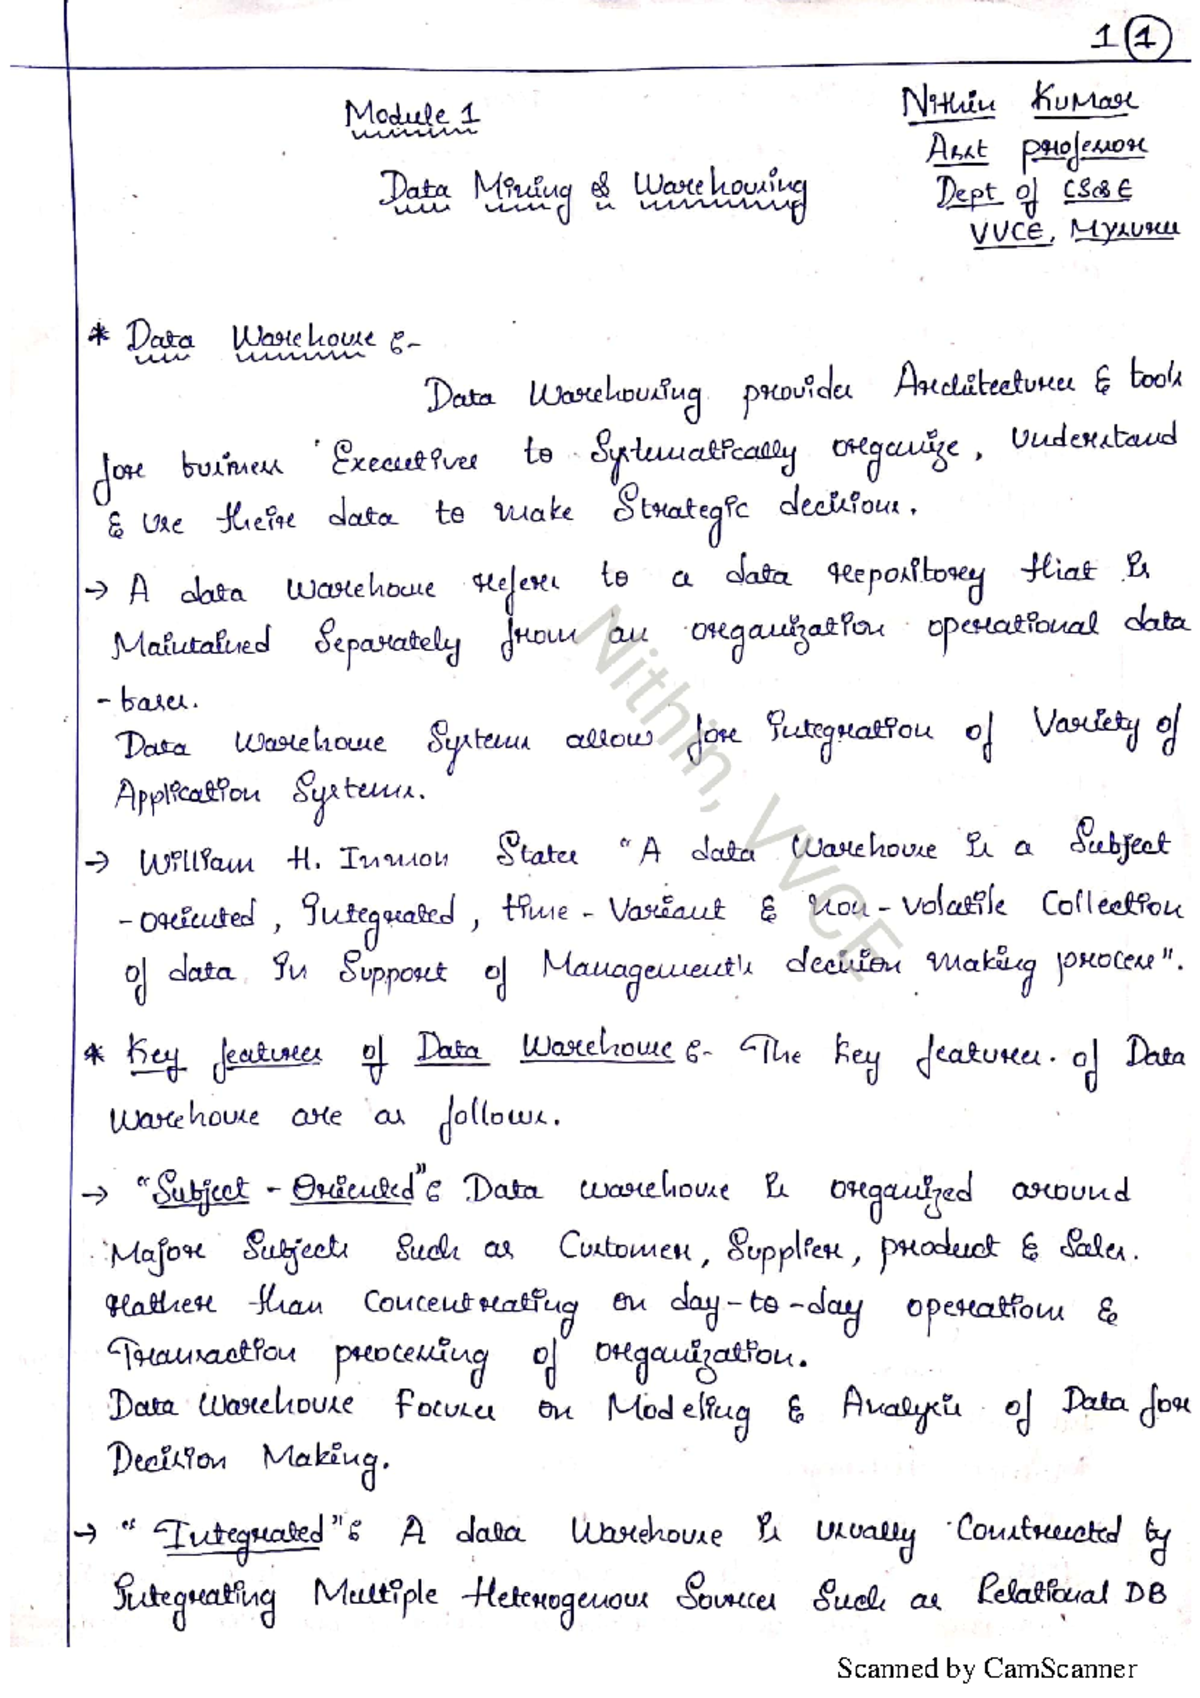 1 1
Module 1
Nithin Kumar
Asst professor
Data Mining & Warehousing
Dept of CS&E
VVCE, Mysuru
* Data Warehouse :-
Data Warehousing provides Architectures & tools
for business Executives to Systematically organize, Understand
& use their data to make Strategic decisions.
→ A data warehouse refers to a data repository that is
Maintained Separately from an organization operational data
-bases.
Data Warehouse Systems allow for Integration of Variety of
Application Systems.
→ William H. Inmon States "A data Warehouse is a Subject
-oriented, Integrated, time-Variant & non-volatile Collection
of data in Support of Management's decision making process".
* Key features of Data Warehouse :- The key features of Data
Warehouse are as follows.
→ "Subject - Oriented" : Data warehouse is organized around
Major Subjects Such as Customer, Supplier, product & Sales.
rather than Concentrating on day-to-day operations &
Transaction processing of organization.
Data Warehouse Focuses on Modeling & Analysis of Data for
Decision Making.
→ "Integrated" : A data Warehouse is usually Constructed by
Integrating Multiple Heterogenous Sources Such as Relational DB
Nithin, VVCE
Scanned by CamScanner